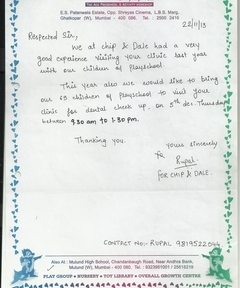 E.S. Patanwala Estate, Opp. Shreyas Cinema, L.B.S. Marg,
Ghatkopar (W), Mumbai - 400 086. Tel. : 2500 2416
22/11/13
Respected Sir,
We at chip & Dale had a very
good experience visiting your clinic last year
with our children of Playschool.
This year also we would like to bring
our 65 children of Playschool to visit your
clinic for dental check up. on 5th dec. Thursday
between 9.30 am to 1.30 pm.
Thanking you.
Yours sincerely
Rupal.
FOR CHIP & DALE.
CONTACT NO:- RUPAL 9819522044
Also At : Mulund High School, Chandanbaugh Road, Near Andhra Bank,
Mulund (W), Mumbai - 400 080. Tel. :
PLAY GROUP • NURSERY • TOY LIBRARY • OVERALL GROWTH CENTRE